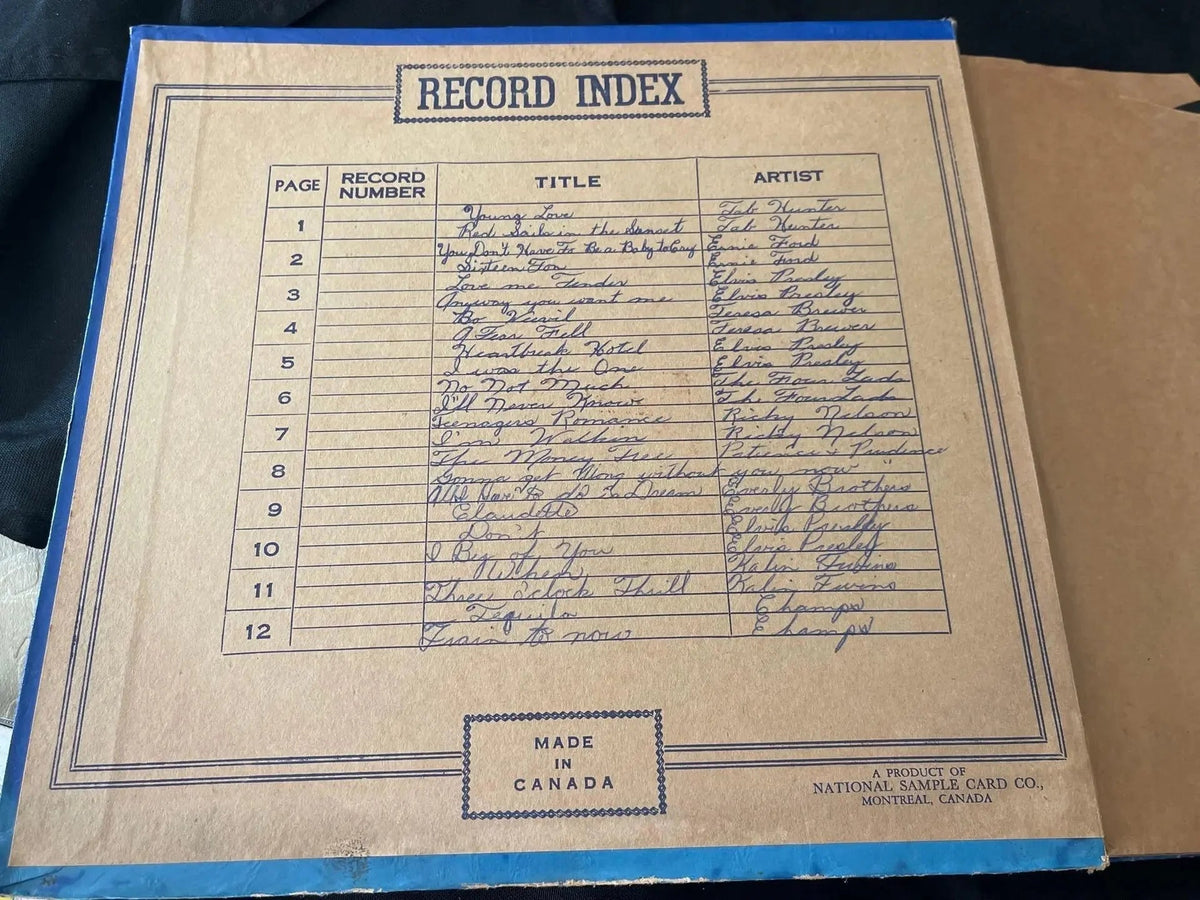 RECORD INDEX
PAGE RECORD NUMBER TITLE ARTIST
1 Young Love Tab Hunter
Red Sails in the Sunset Tab Hunter
2 You Don't Have To Be a Baby to Cry Ernie Ford
Sixteen Ton Ernie Ford
3 Love me Tender Elvis Presley
Anyway you want me Elvis Presley
4 Bo Weevil Teresa Brewer
A Tear Fell Teresa Brewer
5 Heartbreak Hotel Elvis Presley
I was the One Elvis Presley
6 No Not Much The Four Lads
I'll Never Know The Four Lads
7 Teenagers Romance Ricky Nelson
I'm Walkin Ricky Nelson
8 The Money Tree Patience & Prudence
Gonna get Along without you now "
9 All I Have to do is Dream Everly Brothers
Claudette Everly Brothers
10 Don't Elvis Presley
I Beg of You Elvis Presley
11 When Kalin Twins
Three O'clock Thrill Kalin Twins
12 Tequila Champs
Train to now Champs
MADE
IN
CANADA
A PRODUCT OF
NATIONAL SAMPLE CARD CO.,
MONTREAL, CANADA